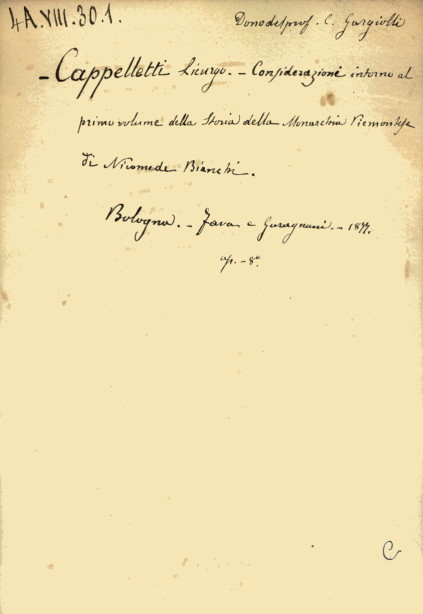 4A.VIII.30.1.
Dono del prof. C. Gargiolli
- Cappelletti Licurgo. - Considerazioni intorno al
primo volume della Storia della Monarchia Piemontese
di Nicomede Bianchi.
Bologna. - Fava e Garagnani. - 1877.
op. - 8°.
C